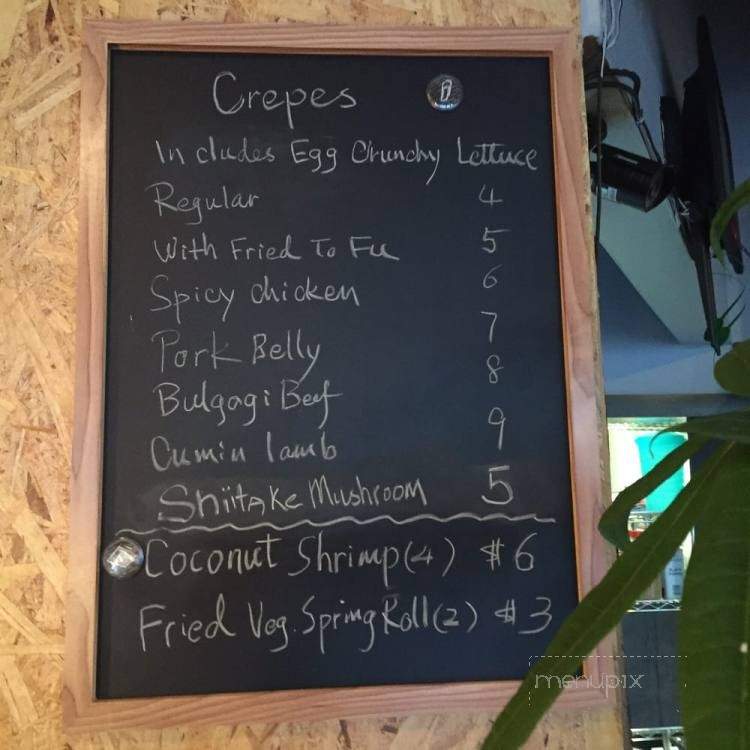 Crepes
Includes Egg Crunchy Lettuce
Regular 4
With Fried To Fu 5
Spicy chicken 6
Pork Belly 7
Bulgagi Beef 8
Cumin lamb 9
Shiitake Mushroom 5
Coconut Shrimp(4) $6
Fried Veg. Spring Roll(2) $3
menupix